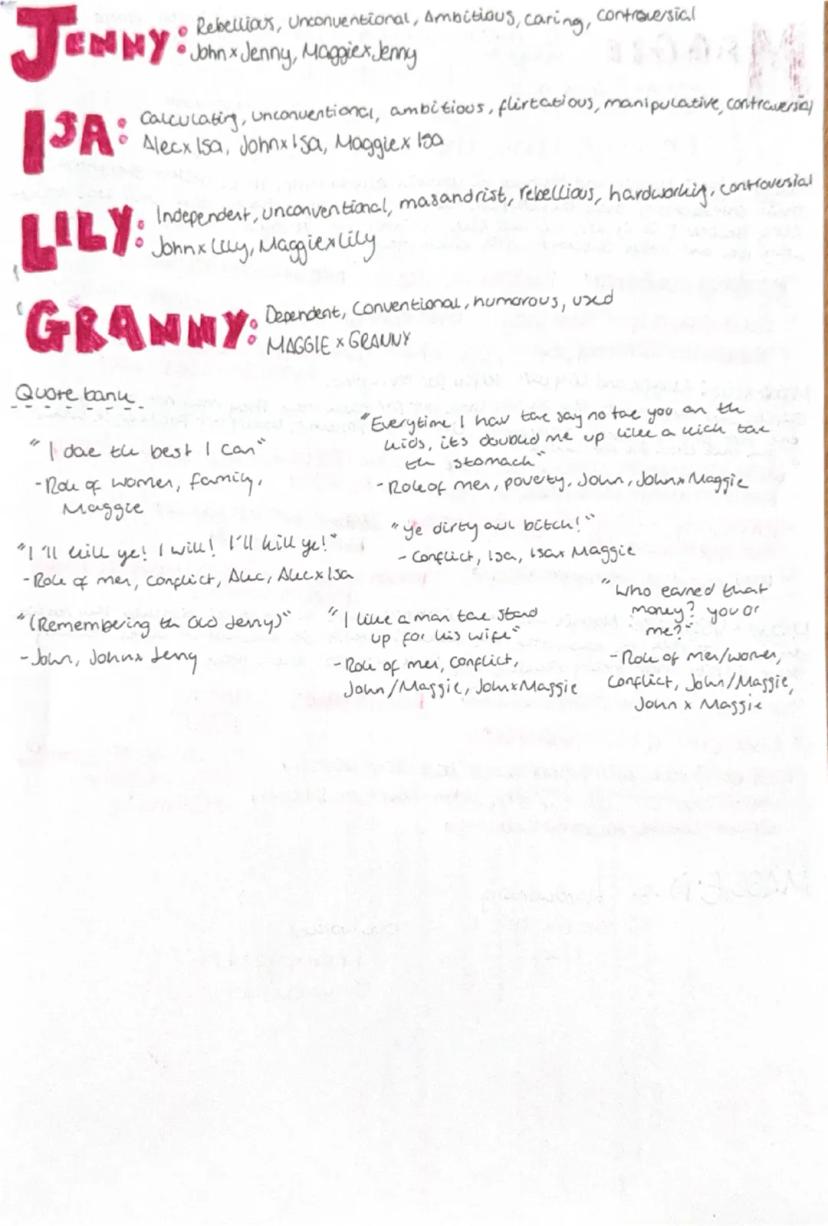 JENNY: Rebellious, Unconventional, Ambitious, caring, controversial
John x Jenny, Maggie x Jenny
ISA: Calculating, unconventional, ambitious, flirtatious, manipulative, controversial
Alec x Isa, John x Isa, Maggie x Isa
LILY: Independent, unconventional, masandrist, rebellious, hardworking, controversial
John x Lily, Maggie x Lily
GRANNY: Dependent, Conventional, humorous, used
MAGGIE x GRANNY
Quote bank
"I dae the best I can"
- Role of women, family,
Maggie
"Everytime I how tae say no tae you an th
kids, it's doubled me up like a kick tae
th stomach"
- Role of men, poverty, John, John x Maggie
"I'll kill ye! I will! I'll kill ye!"
- Role of men, conflict, Alec, Alec x Isa
"Ye dirty aul bitch!"
- Conflict, Isa, Isa x Maggie
"(Remembering th Old Jenny)"
- John, John x Jenny
"I like a man tae stand
up for his wife"
- Role of men, conflict,
John/Maggie, John x Maggie
"Who earned that
money? you or
me?"
- Role of men/women,
Conflict, John/Maggie,
John x Maggie